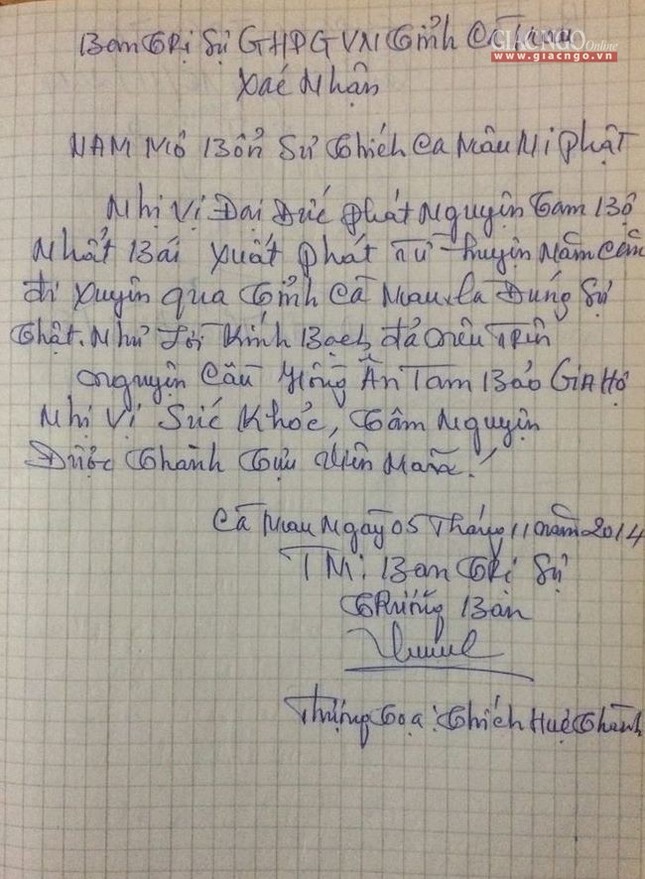 Ban Trị Sự GHPGVN Tỉnh Cà Mau
GIACNGO Online
www.giacngo.vn
Xác Nhận
NAM MÔ BỔN SƯ Thích Ca Mâu Ni Phật
Nhị Vị Đại Đức phát Nguyện Tam Bộ
Nhất Bái xuất phát từ huyện Năm Căn
đi xuyên qua Tỉnh Cà Mau. là Đúng Sự
Thật. Như Lời Kính Bạch đã nêu Trên
nguyện Cầu Hồng Ân Tam Bảo GIA Hộ
Nhị Vị Sức Khỏe, Tâm Nguyện
Được Thành Tựu Viên Mãn!
Cà Mau Ngày 05 Tháng 11 năm 2014
TM: Ban Trị Sự
Trưởng Ban
Thượng Tọa: Thích Huệ Thành